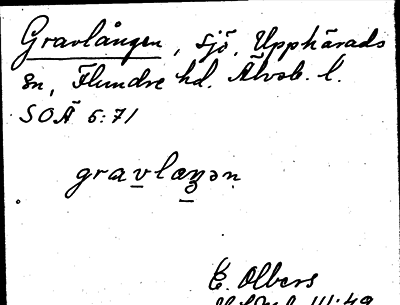 Gravlången, sjö, Upphärads
sn, Flundre hd. Älvsb. l.
SOÄ 6:71
gravlaŋən
E. Olbers